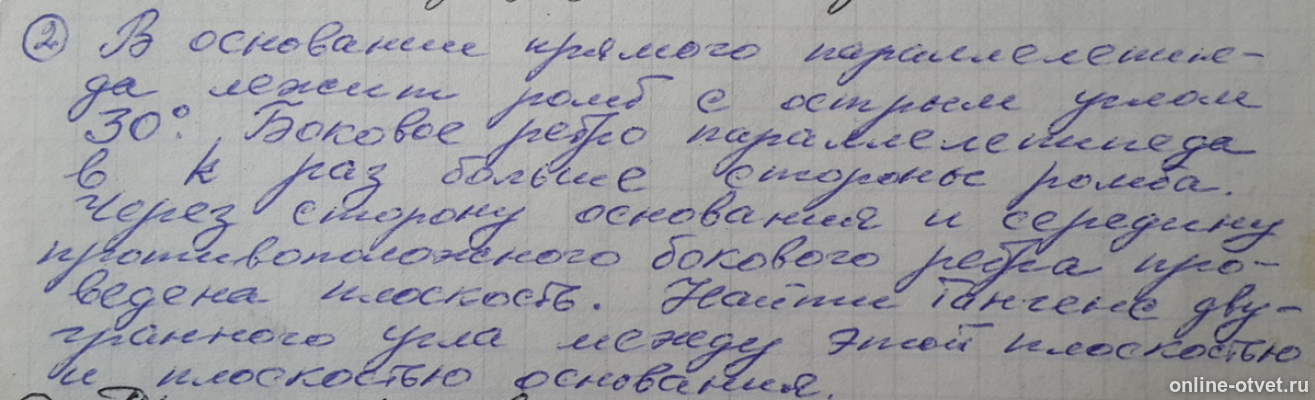 2 В основании прямого параллелепипе-
да лежит ромб с острым углом
30°. Боковое ребро параллелепипеда
в k раз больше стороны ромба.
Через сторону основания и середину
противоположного бокового ребра про-
ведена плоскость. Найти тангенс дву-
гранного угла между этой плоскостью
и плоскостью основания.
online-otvet.ru